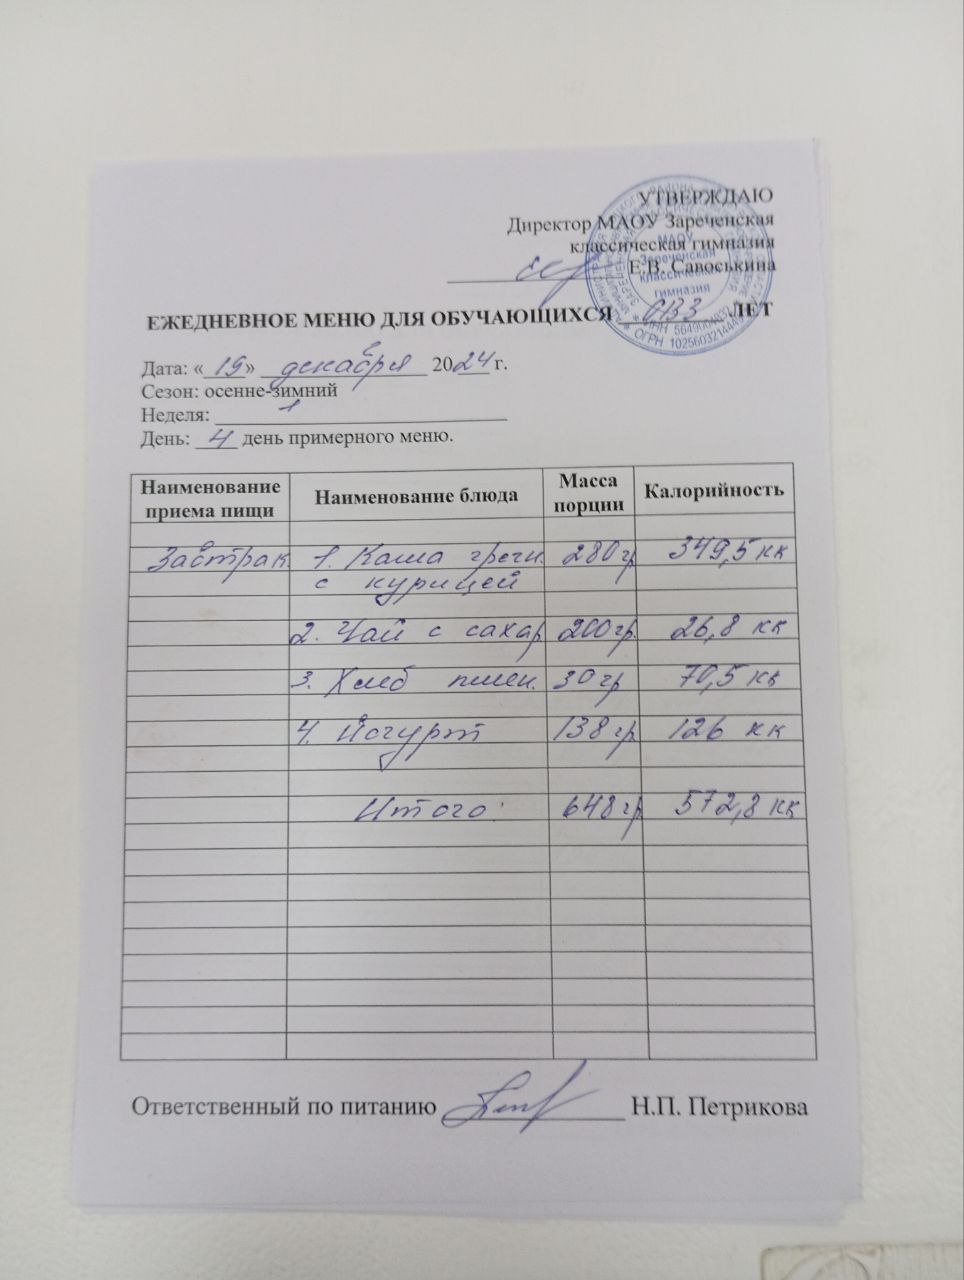 УТВЕРЖДАЮ
Директор МАОУ Зареченская
классическая гимназия
Е.В. Савоськина
МАОУ
Зареченская
классическая
гимназия
ИНН 5649004832
ОГРН 1025603214444
ЕЖЕДНЕВНОЕ МЕНЮ ДЛЯ ОБУЧАЮЩИХСЯ ОВЗ ЛЕТ
Дата: «19» декабря 2024 г.
Сезон: осенне-зимний
Неделя: 1
День: 4 день примерного меню.
Наименование приема пищи Наименование блюда Масса порции Калорийность
Завтрак 1. Каша гречн. 280 гр 349,5 кк
с курицей
2. Чай с сахар 200 гр 26,8 кк
3. Хлеб пшен. 30 гр 70,5 кк
4. Йогурт 138 гр 126 кк
Итого: 648 гр 572,8 кк
Ответственный по питанию Н.П. Петрикова